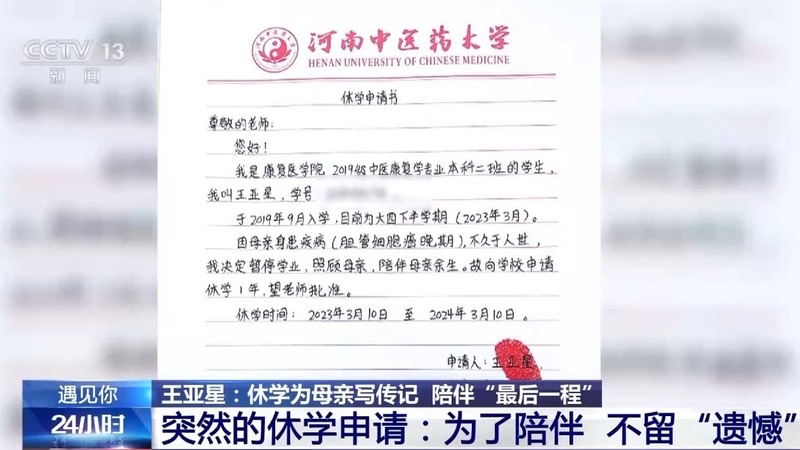 CCTV 13
新闻
河南中医药大学
HENAN UNIVERSITY OF CHINESE MEDICINE
休学申请书
尊敬的老师：
您好！
我是康复医学院 2019级中医康复学专业本科二班的学生，
我叫王亚星，学号
于2019年9月入学，目前为大四下半学期（2023年3月）。
因母亲身患疾病（胆管细胞癌晚期），不久于人世，
我决定暂停学业，照顾母亲，陪伴母亲余生。故向学校申请
休学1年，望老师批准。
休学时间：2023年3月10日 至 2024年3月10日。
申请人：王亚星
遇见你
王亚星：休学为母亲写传记 陪伴“最后一程”
24小时
突然的休学申请：为了陪伴 不留“遗憾”